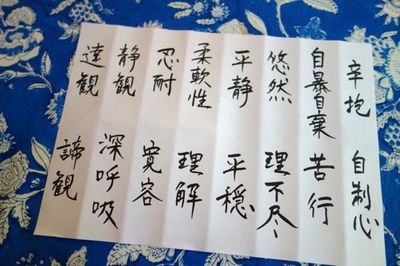 辛抱　自制心
自暴自棄　苦行
悠然　理不尽
平静　平穏
柔軟性　理解
忍耐　寛容
静観　深呼吸
達観　諦観